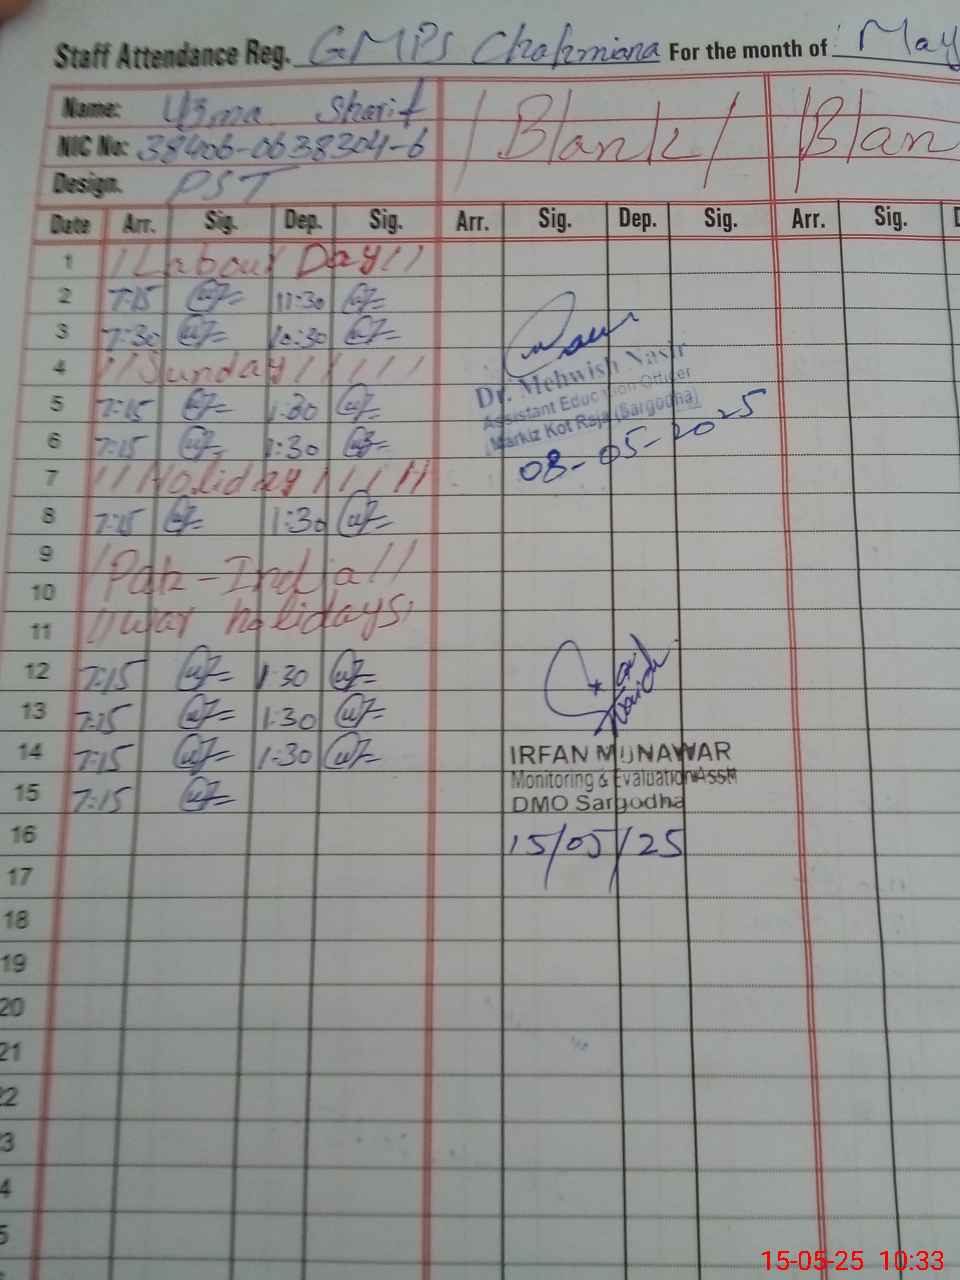 Staff Attendance Reg. GMPS Chahmiana For the month of May
Name: Uzma Sharif / Blank / / Blan
NIC No: 38406-0638304-6
Design. PST
Date Arr. Sig. Dep. Sig. Arr. Sig. Dep. Sig. Arr. Sig. D
1 // Labour Day //
2 7:15 11:30
3 7:30 10:30
4 // Sunday / / / / /
Dr. Mehwish Nasir
5 7:15 1:30
Assistant Education Officer
6 7:15 1:30
Markiz Kot Raja (Sargodha)
08-05-2025
7 / / Holiday / / / / /
8 7:15 1:30
9 / Pak-India //
10
11 // war holidays,
12 7:15 1:30
13 7:15 1:30
14 7:15 1:30
IRFAN MUNAWAR
Monitoring & Evaluation Asstt
15 7:15
DMO Sargodha
16 15/05/25
17
18
19
20
21
2
3
4
5
15-05-25 10:33